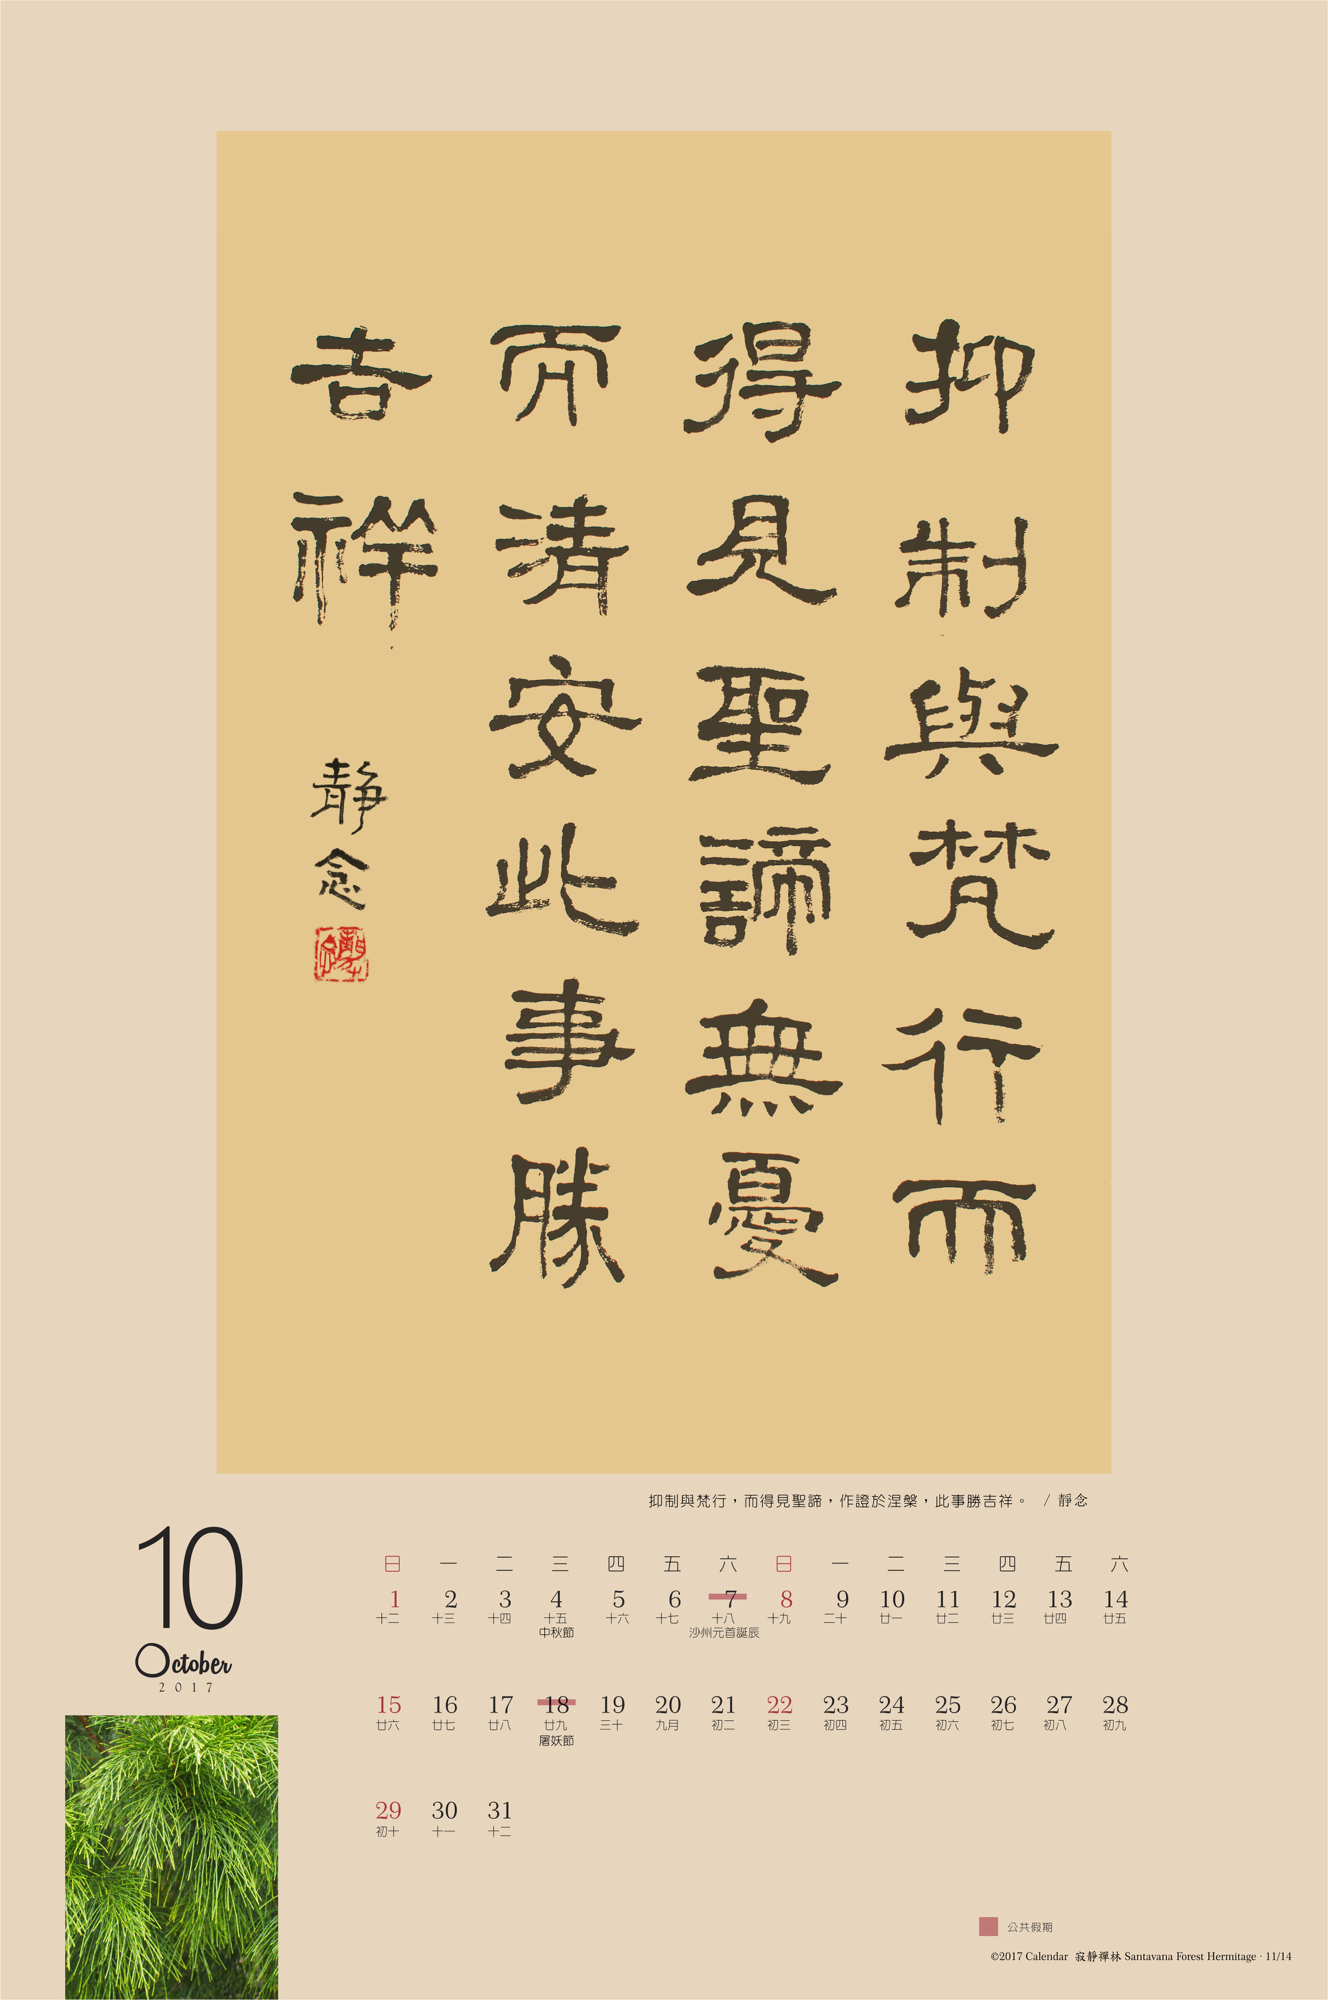 抑制與梵行而
得見聖諦無憂
而清安此事勝
吉祥
靜念
抑制與梵行，而得見聖諦，作證於涅槃，此事勝吉祥。 / 靜念
10
October
2017
日 一 二 三 四 五 六 日 一 二 三 四 五 六
1 2 3 4 5 6 7 8 9 10 11 12 13 14
十二 十三 十四 十五 十六 十七 十八 十九 二十 廿一 廿二 廿三 廿四 廿五
中秋節 沙州元首誕辰
15 16 17 18 19 20 21 22 23 24 25 26 27 28
廿六 廿七 廿八 廿九 三十 九月 初二 初三 初四 初五 初六 初七 初八 初九
屠妖節
29 30 31
初十 十一 十二
公共假期
©2017 Calendar 寂靜禪林 Santavana Forest Hermitage · 11/14